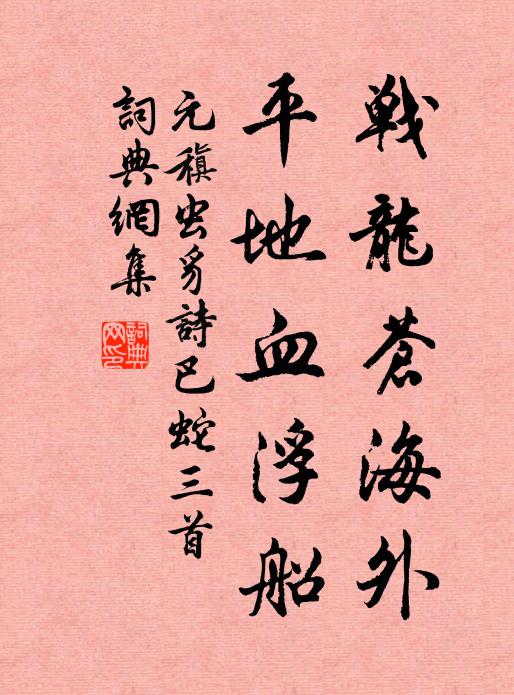 戦龍蒼海外
平地血浮船
元稹虫豸詩巴蛇三首
詞典網集
詞典網印